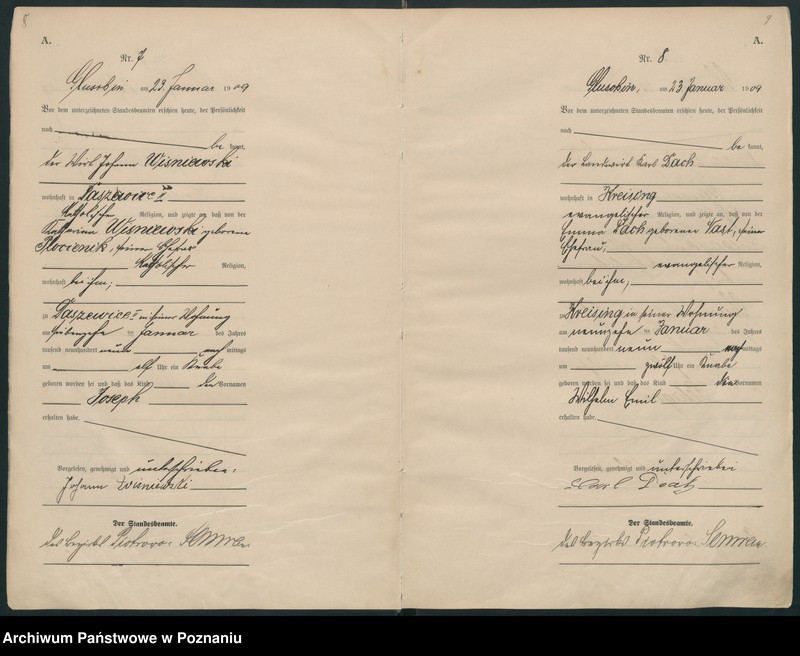 8
A.
Nr. 7
am 23. Januar 1909
Vor dem unterzeichneten Standesbeamten erschien heute, der Persönlichkeit
nach
be kannt,
der Wirt Johann Wiśniewski
wohnhaft in
katholischer Religion, und zeigte an, daß von der
Katharina Wiśniewski geborene
seiner Ehefrau
katholischer Religion,
wohnhaft bei ihm,
zu in seiner Wohnung
am siebzehn ten Januar des Jahres
tausend neunhundert neun nach mittags
um elf Uhr ein Knabe
geboren worden sei und daß das Kind den Vornamen
Joseph
erhalten habe.
Vorgelesen, genehmigt und unterschrieben.
Johann Wiśniewski
Der Standesbeamte.
des Bezirks Piotrowo
9
A.
Nr. 8
am 23 Januar 1909
Vor dem unterzeichneten Standesbeamten erschien heute, der Persönlichkeit
nach
be kannt,
der Landwirt Karl Dach
wohnhaft in Kreising
evangelischer Religion, und zeigte an, daß von der
Emma Dach geborenen Nast, seiner
Ehefrau,
evangelischer Religion,
wohnhaft bei ihm,
zu Kreising in seiner Wohnung
am neunzehn ten Januar des Jahres
tausend neunhundert neun nach mittags
um zwölf Uhr ein Knabe
geboren worden sei und daß das Kind die Vornamen
Wilhelm Emil
erhalten habe.
Vorgelesen, genehmigt und unterschrieben
Der Standesbeamte.
des Bezirks Piotrowo
Archiwum Państwowe w Poznaniu